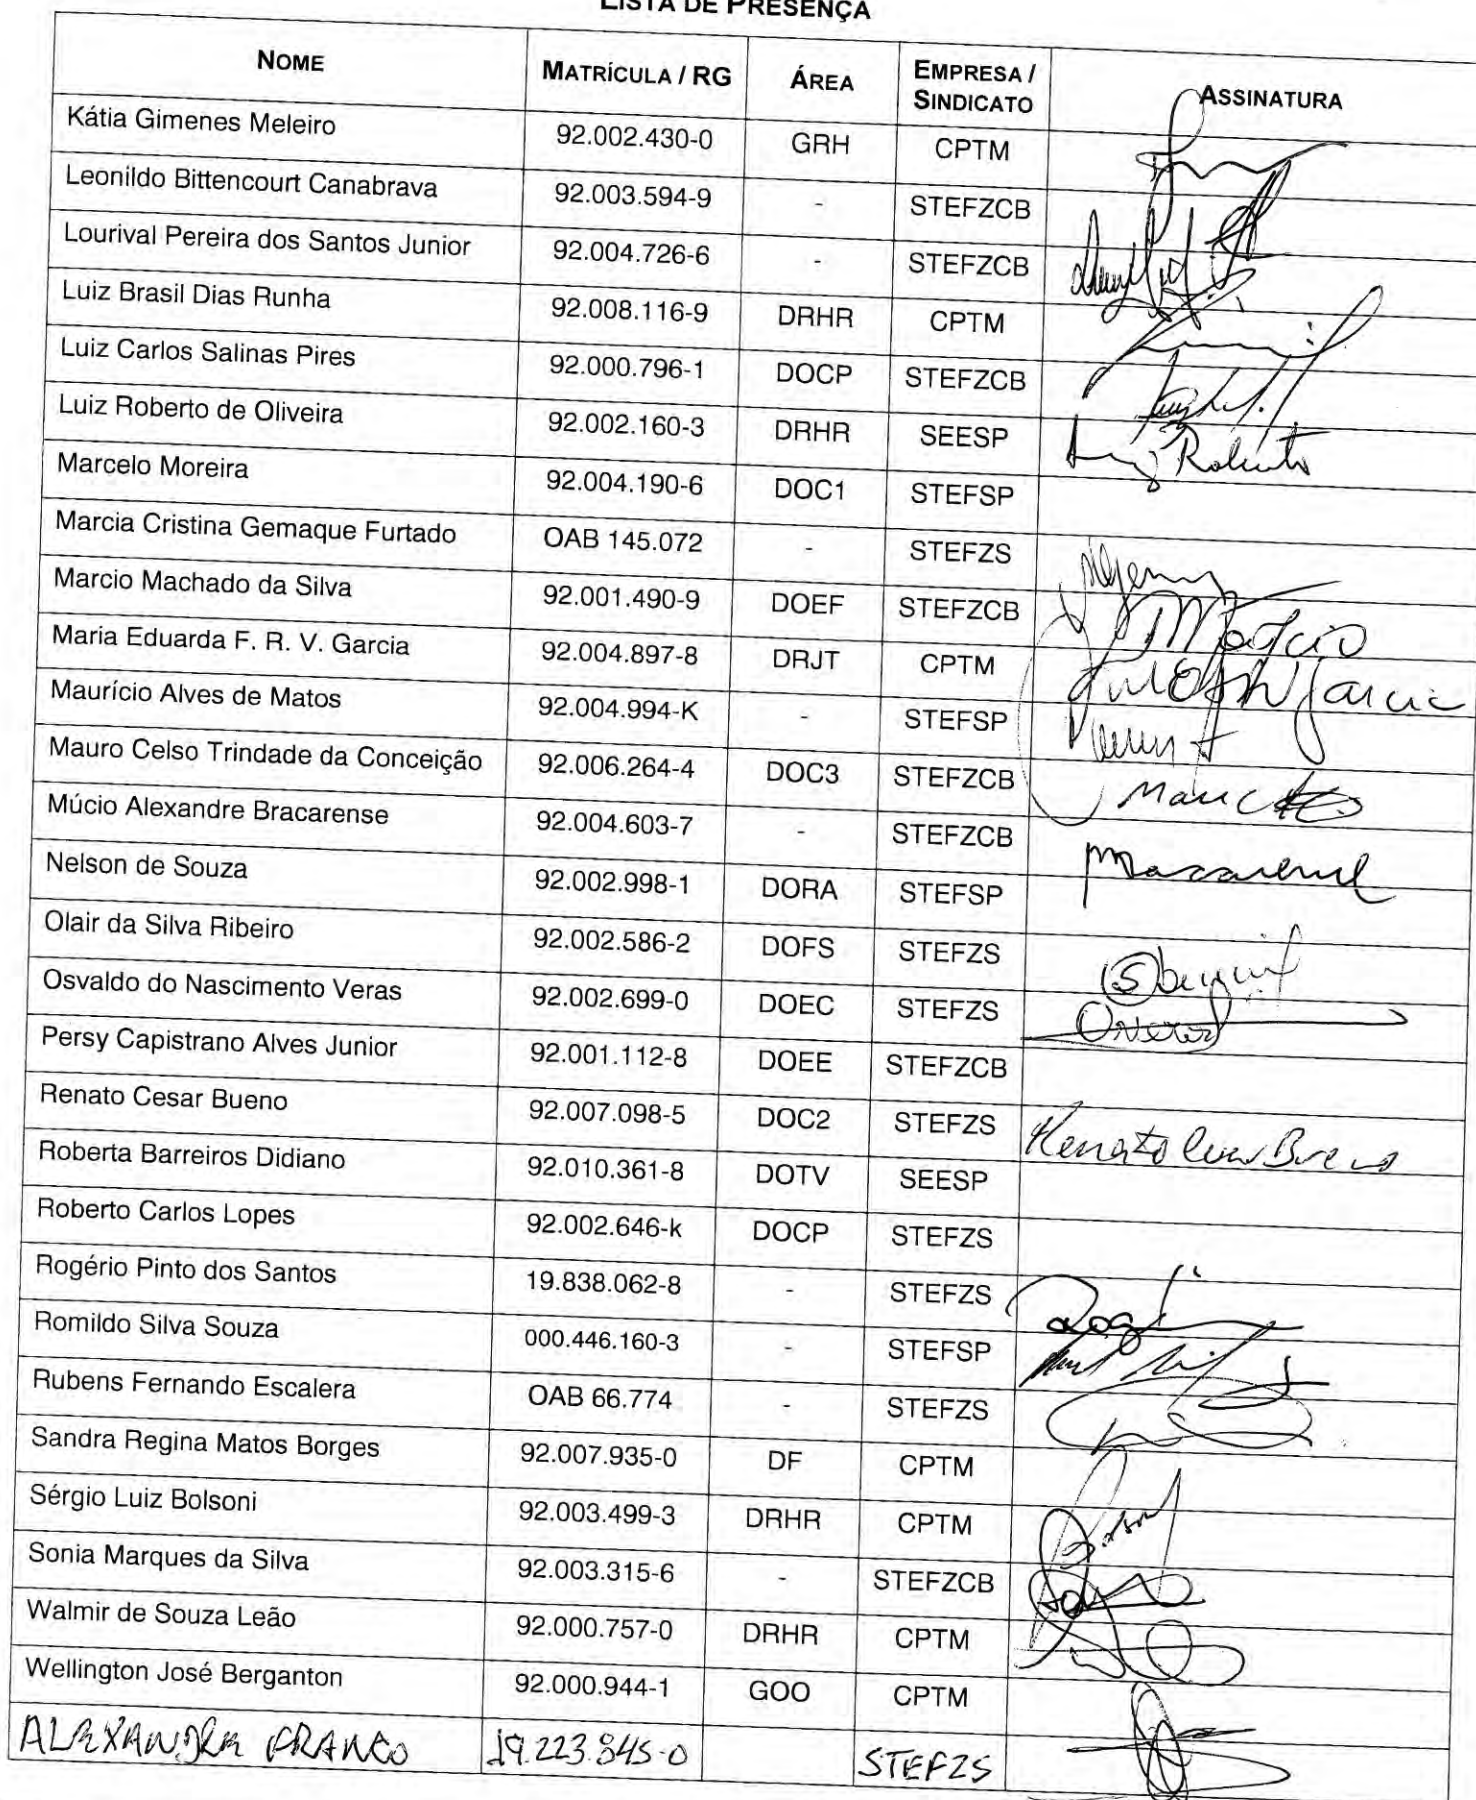 LISTA DE PRESENÇA
NOME MATRÍCULA / RG ÁREA EMPRESA / SINDICATO ASSINATURA
Kátia Gimenes Meleiro 92.002.430-0 GRH CPTM
Leonildo Bittencourt Canabrava 92.003.594-9 - STEFZCB
Lourival Pereira dos Santos Junior 92.004.726-6 - STEFZCB
Luiz Brasil Dias Runha 92.008.116-9 DRHR CPTM
Luiz Carlos Salinas Pires 92.000.796-1 DOCP STEFZCB
Luiz Roberto de Oliveira 92.002.160-3 DRHR SEESP Luiz Roberto
Marcelo Moreira 92.004.190-6 DOC1 STEFSP
Marcia Cristina Gemaque Furtado OAB 145.072 - STEFZS
Marcio Machado da Silva 92.001.490-9 DOEF STEFZCB Marcio
Maria Eduarda F. R. V. Garcia 92.004.897-8 DRJT CPTM Garcia
Maurício Alves de Matos 92.004.994-K - STEFSP
Mauro Celso Trindade da Conceição 92.006.264-4 DOC3 STEFZCB
Múcio Alexandre Bracarense 92.004.603-7 - STEFZCB
Nelson de Souza 92.002.998-1 DORA STEFSP
Olair da Silva Ribeiro 92.002.586-2 DOFS STEFZS
Osvaldo do Nascimento Veras 92.002.699-0 DOEC STEFZS
Persy Capistrano Alves Junior 92.001.112-8 DOEE STEFZCB
Renato Cesar Bueno 92.007.098-5 DOC2 STEFZS Renato Cesar Bueno
Roberta Barreiros Didiano 92.010.361-8 DOTV SEESP
Roberto Carlos Lopes 92.002.646-k DOCP STEFZS
Rogério Pinto dos Santos 19.838.062-8 - STEFZS
Romildo Silva Souza 000.446.160-3 - STEFSP
Rubens Fernando Escalera OAB 66.774 - STEFZS
Sandra Regina Matos Borges 92.007.935-0 DF CPTM
Sérgio Luiz Bolsoni 92.003.499-3 DRHR CPTM
Sonia Marques da Silva 92.003.315-6 - STEFZCB
Walmir de Souza Leão 92.000.757-0 DRHR CPTM
Wellington José Berganton 92.000.944-1 GOO CPTM
ALEXANDRE FRANCO 19.223.845-0 STEFZS